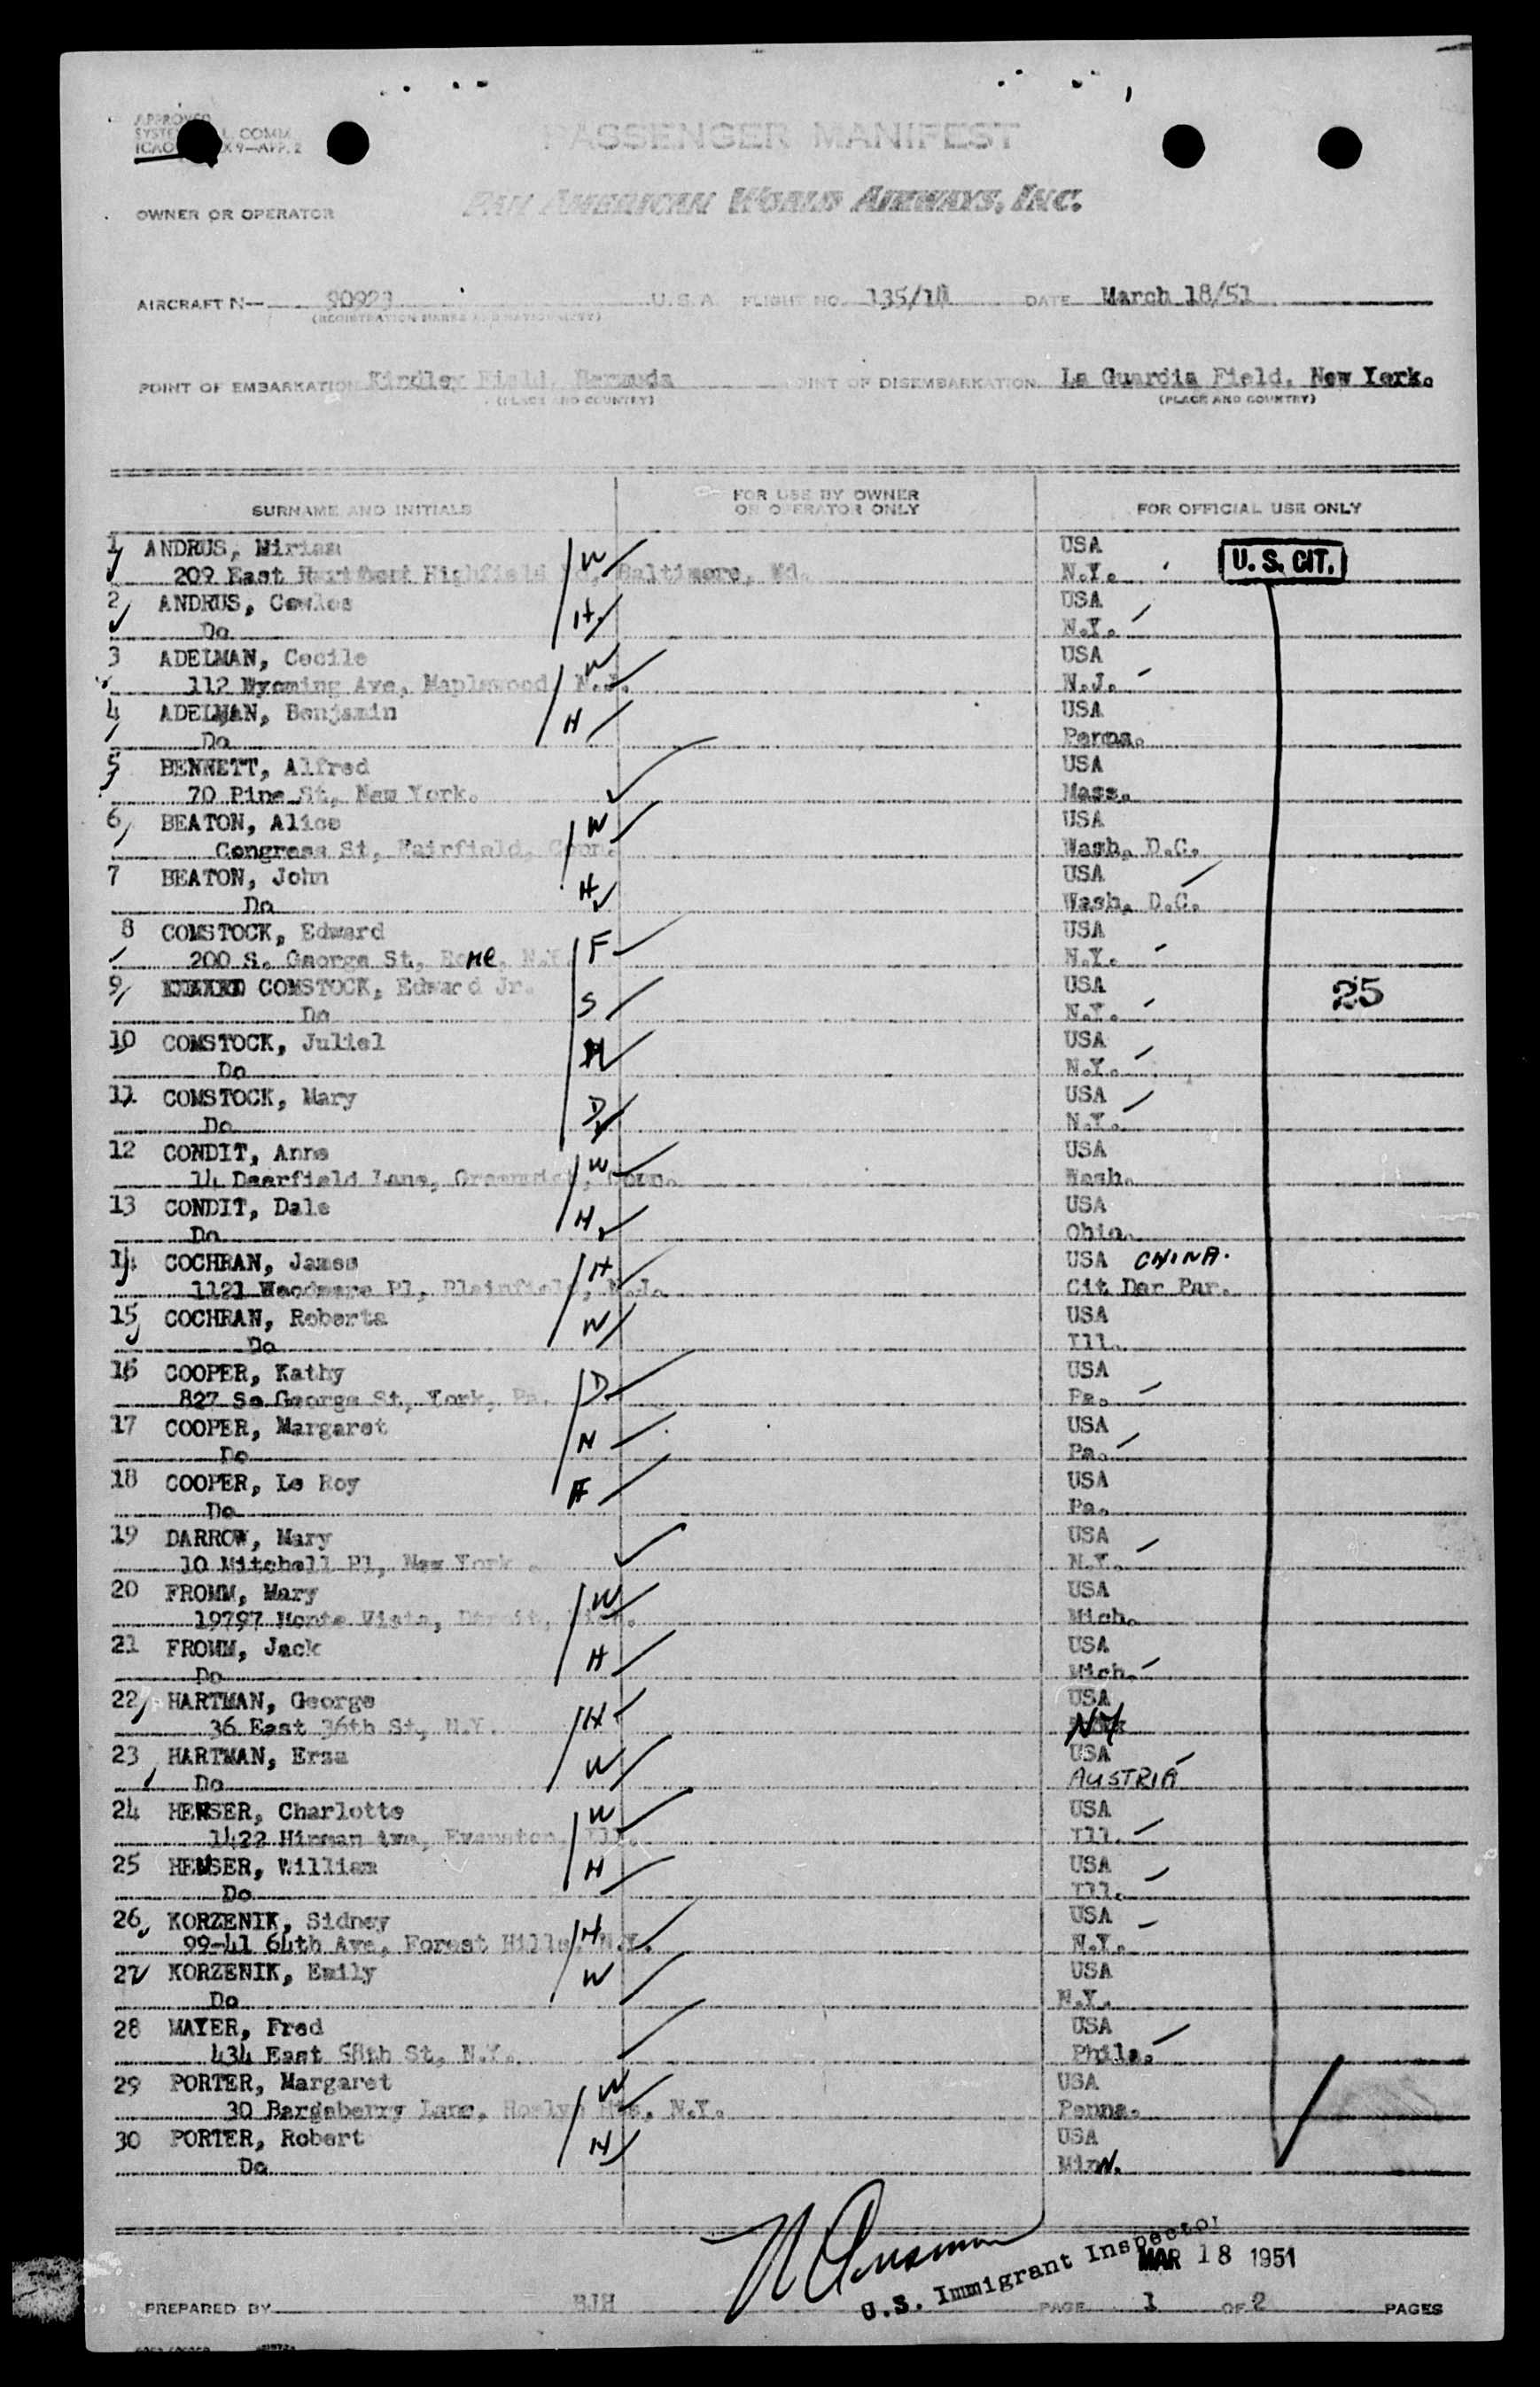 APPROVED
L. COMM.
ICAO X 9—APP. 2
PASSENGER MANIFEST
OWNER OR OPERATOR PAN AMERICAN WORLD AIRWAYS, INC.
AIRCRAFT N— 90923 U.S.A. FLIGHT NO. DATE March 18/51
(REGISTRATION MARKS AND NATIONALITY)
POINT OF EMBARKATION Kindley Field, Bermuda POINT OF DISEMBARKATION La Guardia Field, New York.
(PLACE AND COUNTRY) (PLACE AND COUNTRY)
SURNAME AND INITIALS FOR USE BY OWNER OR OPERATOR ONLY FOR OFFICIAL USE ONLY
1 ANDRUS, Miriam W USA U. S. CIT.
209 East Highfield Rd, Baltimore, Md. N.Y.
2 ANDRUS, Cowles H USA
Do N.Y.
3 ADELMAN, Cecile W USA
112 Wyoming Ave, Maplewood, N.J. N.J.
4 ADELMAN, Benjamin H USA
Do Penna.
5 BENNETT, Alfred USA
70 Pine St, New York. Mass.
6 BEATON, Alice W USA
Congress St, Fairfield, Conn. Wash, D.C.
7 BEATON, John H USA
Do Wash, D.C.
8 COMSTOCK, Edward F USA
200 S. George St, N.Y. N.Y.
9 COMSTOCK, Edward Jr. S USA 25
Do N.Y.
10 COMSTOCK, Juliel USA
Do N.Y.
11 COMSTOCK, Mary D USA
Do N.Y.
12 CONDIT, Anne W USA
14 Deerfield Lane, Greenwich, Conn. Wash.
13 CONDIT, Dale H USA
Do Ohio.
14 COCHRAN, James H USA CHINA.
1121 Woodmere Pl, Plainfield, N.J. Cit Der Par.
15 COCHRAN, Roberta W USA
Do Ill.
16 COOPER, Kathy D USA
827 So George St, York, Pa. Pa.
17 COOPER, Margaret USA
Do Pa.
18 COOPER, Le Roy F USA
Do Pa.
19 DARROW, Mary USA
10 Mitchell Pl, New York . N.Y.
20 FROMM, Mary W USA
19797 Monte Vista, Mich. Mich.
21 FROMM, Jack H USA
Do Mich.
22 HARTMAN, George H USA
36 East 36th St, N.Y. NY
23 HARTMAN, Erza W USA
Do AUSTRIA
24 HEUSER, Charlotte W USA
1422 Hinman Ave, Evanston, Ill. Ill.
25 HEUSER, William H USA
Do Ill.
26 KORZENIK, Sidney H USA
99-41 64th Ave, Forest Hills, N.Y. N.Y.
27 KORZENIK, Emily W USA
Do N.Y.
28 MAYER, Fred USA
434 East 58th St, N.Y. Phila.
29 PORTER, Margaret W USA
30 Bargaberry Lane, N.Y. Penna.
30 PORTER, Robert H USA
Do Minn.
U.S. Immigrant Inspector
MAR 18 1951
PREPARED BY PAGE 1 OF 2 PAGES